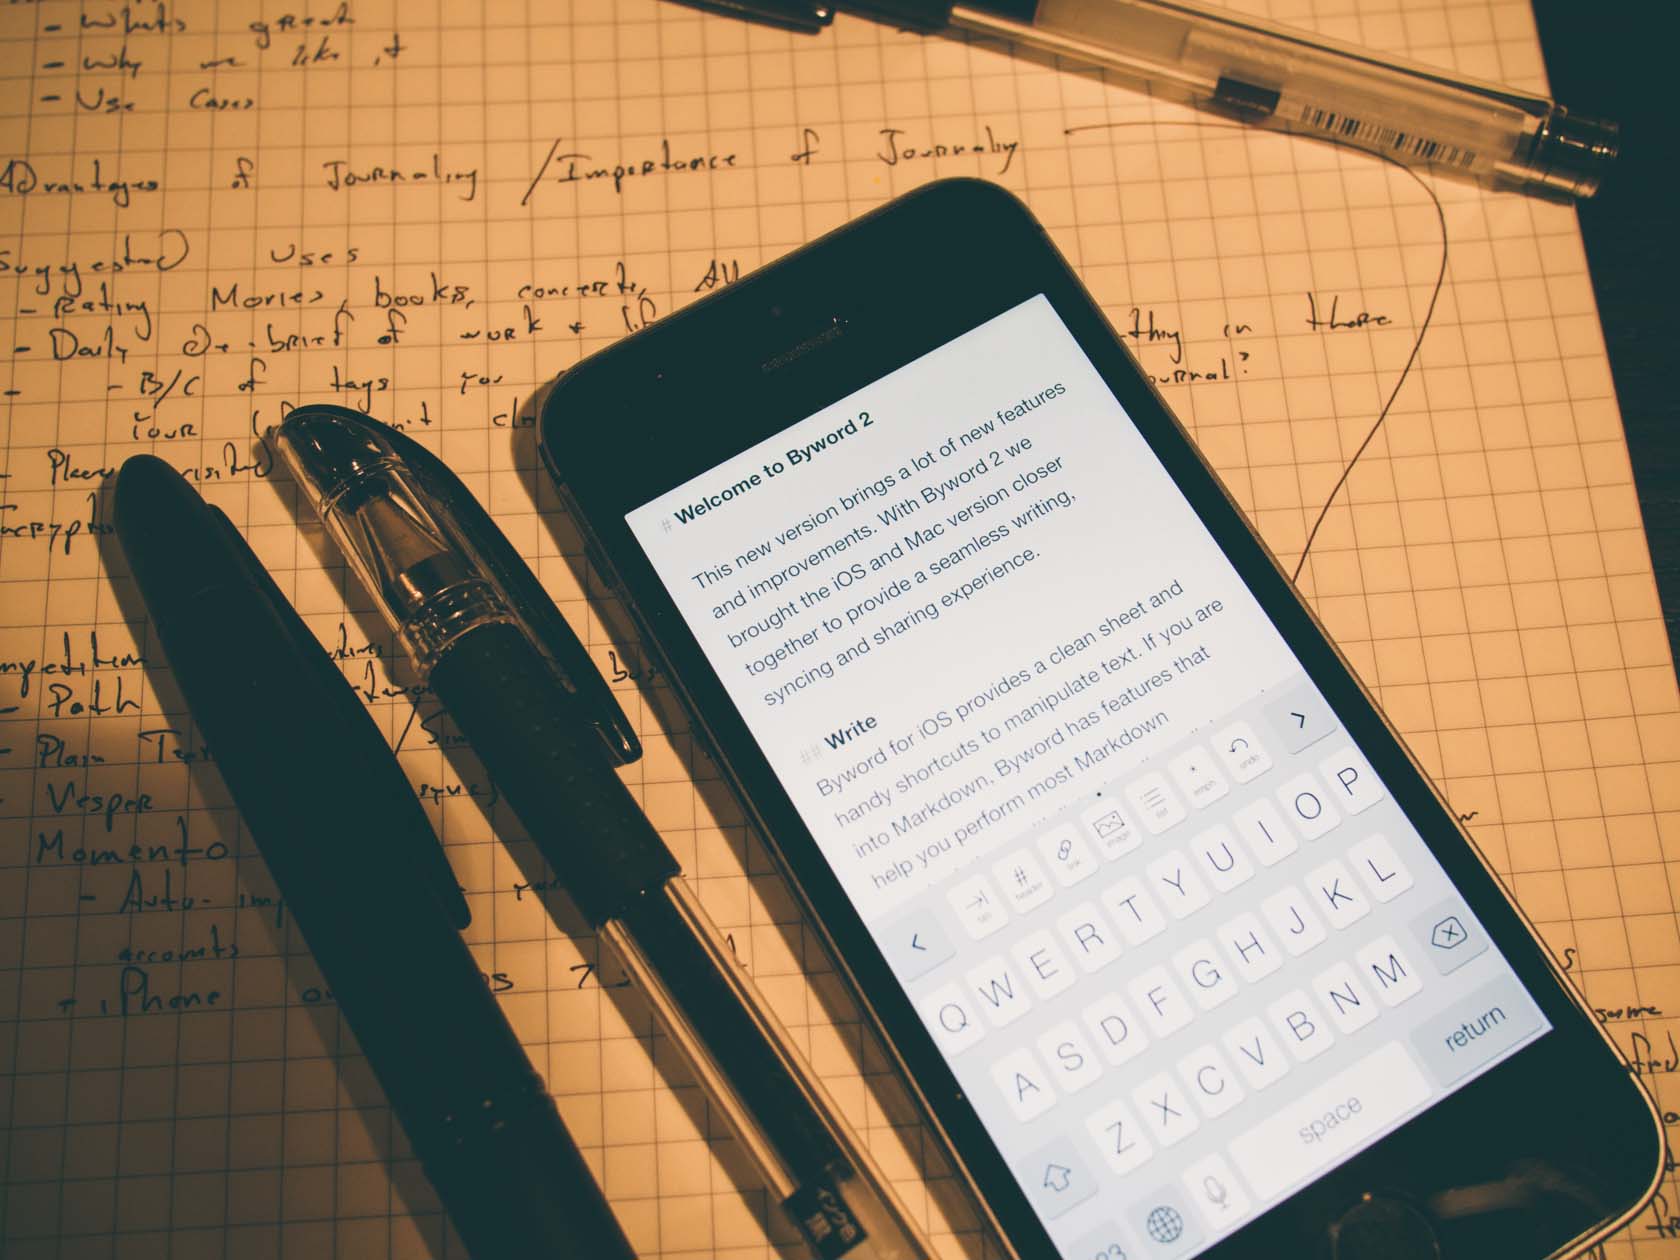 - Whats great
- Why we like it
- Use Cases
Advantages of Journaling / Importance of Journaling
Suggested Uses
- Rating Movies, books, concerts, All
- Daily De-brief of work + lif
thing in there
- - B/C of tags you
ournal?
Your
- visited
- Path
- Plain Text
- Vesper
sync)
Momento
- Auto- imp
accounts
+ iPhone
# Welcome to Byword 2
This new version brings a lot of new features
and improvements. With Byword 2 we
brought the iOS and Mac version closer
together to provide a seamless writing,
syncing and sharing experience.
## Write
Byword for iOS provides a clean sheet and
handy shortcuts to manipulate text. If you are
into Markdown, Byword has features that
help you perform most Markdown
tab # header link image list * emph undo
Q W E R T Y U I O P
A S D F G H J K L
Z X C V B N M
space return
インク色
黒
some